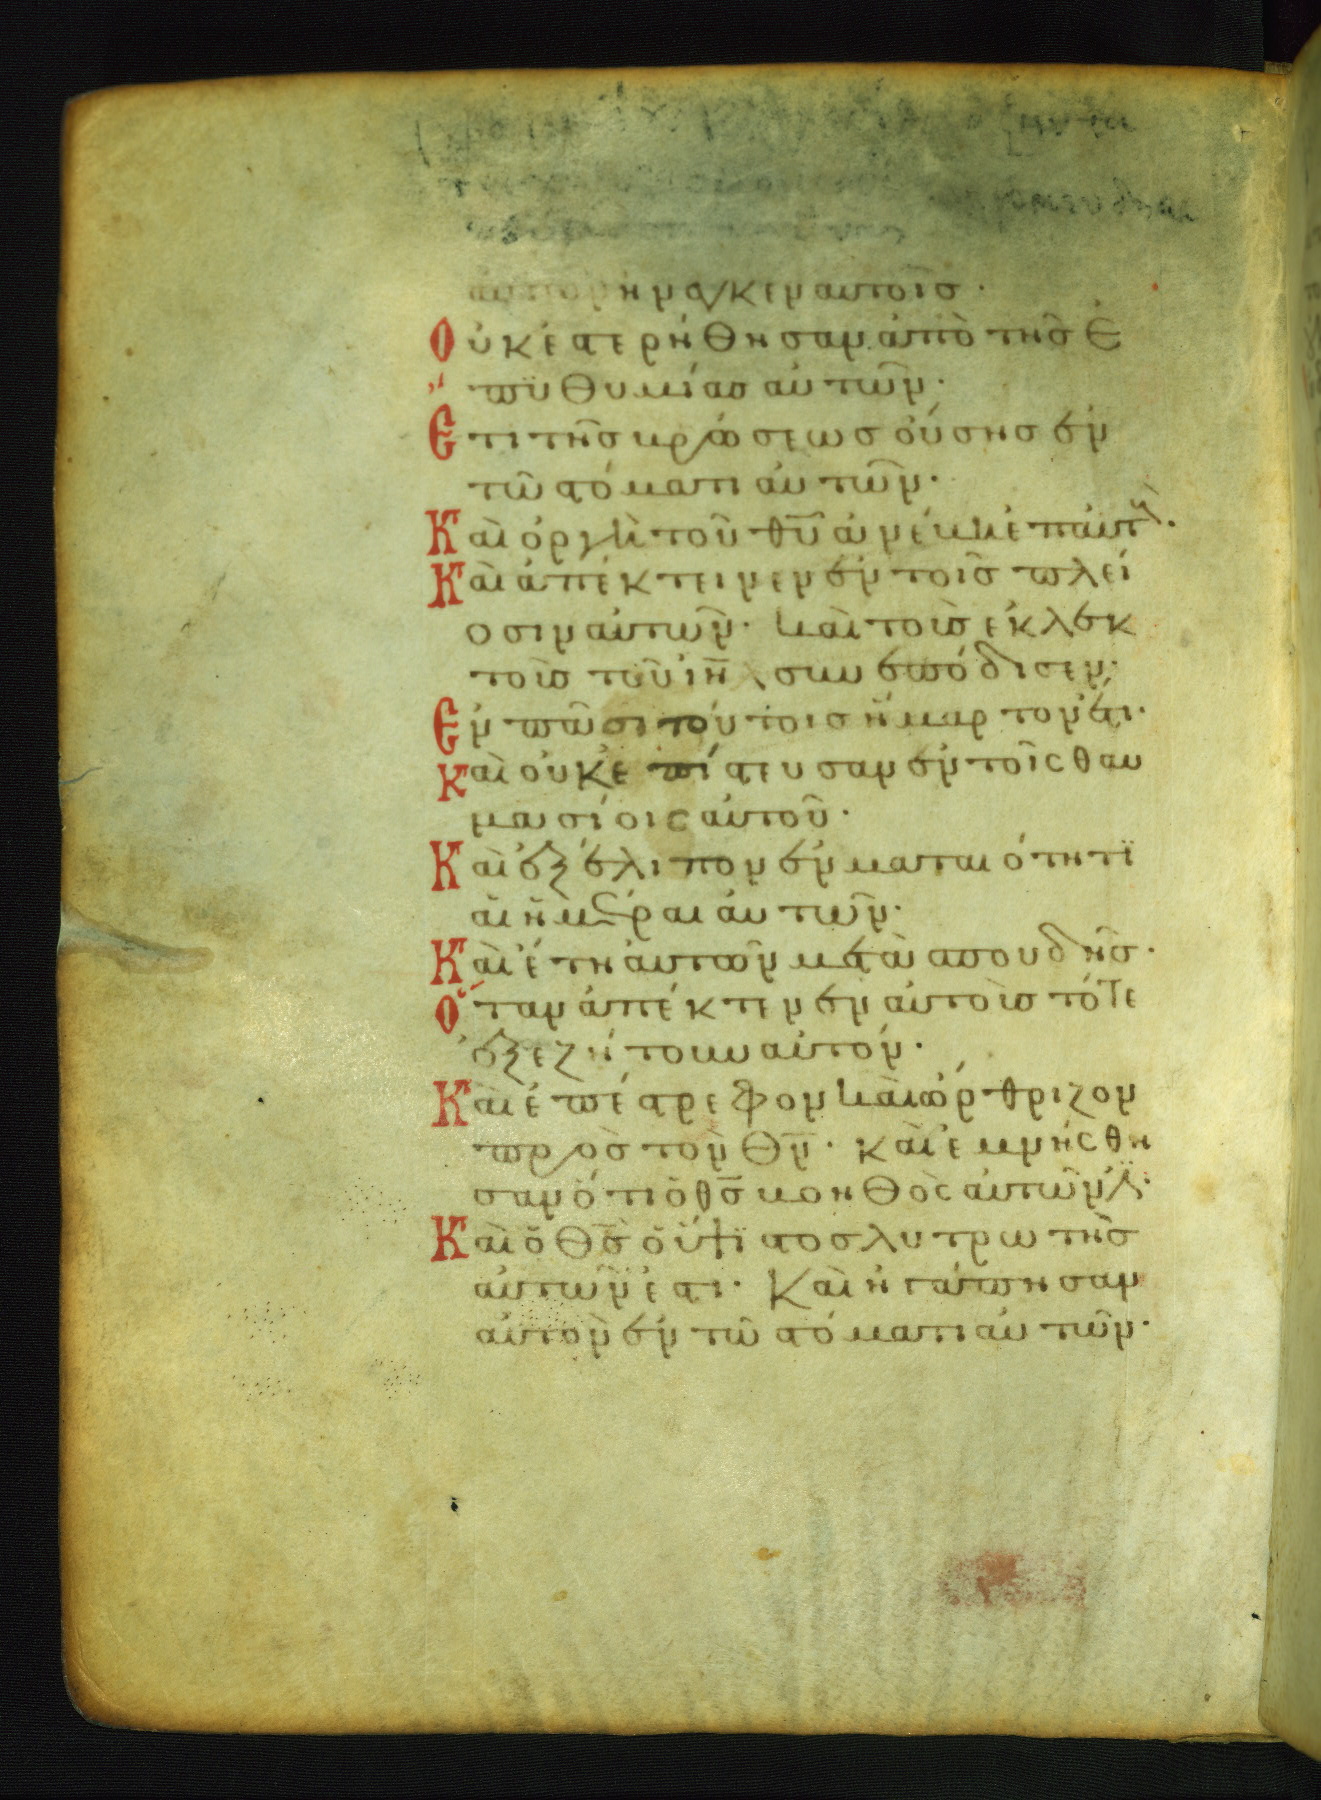 αυτῶν ἤνεγκεν αυτοῖσ ·
Οὐκ ἐστερήθησαν ἀπὸ τῆσ ἐ
πϊθυμίασ αὐτῶν ·
Ετι τῆσ βρώσεωσ οὔσησ ἐν
τῶ στόματι αὐτῶν ·
Καὶ ὀργὴ τοῦ θῡ ἀνέβη ἐπ αὐτ ·
Καὶ ἀπέκτεινεν ἐν τοῖσ πλεί
οσιν αὐτῶν · καὶ τοὺσ ἐκλεκ
τοὺσ τοῦ ιη̄λ συνεπόδισεν ·
Εν πᾶσι τούτοισ ἥμαρτον ἔτι ·
Καὶ οὐκ ἐπίστευσαν ἐν τοῖς θαυ
μασίοις αὐτοῦ ·
Καὶ ἐξέλιπον ἐν ματαιότητϊ
αἱ ἡμέραι αὐτῶν ·
Καὶ ἔτη αὐτῶν μετὰ σπουδῆσ ·
Ὅταν ἀπέκτενεν αὐτοὺσ τότε
ἐξεζήτουν αὐτόν ·
Καὶ ἐπέστρεφον καὶ ὤρθριζον
πρὸσ τὸν Θν̄ · καὶ ἐμνήσθη
σαν ὅτι ὁ θσ̄ βοηθὸς αὐτῶν ἐστι ·
Καὶ ὁ Θσ̄ ὁ ὕψϊστοσ λυτρωτῆσ
αὐτῶν ἐστι · Καὶ ἠγάπησαν
αὐτὸν ἐν τῶ στόματι αὐτῶν ·